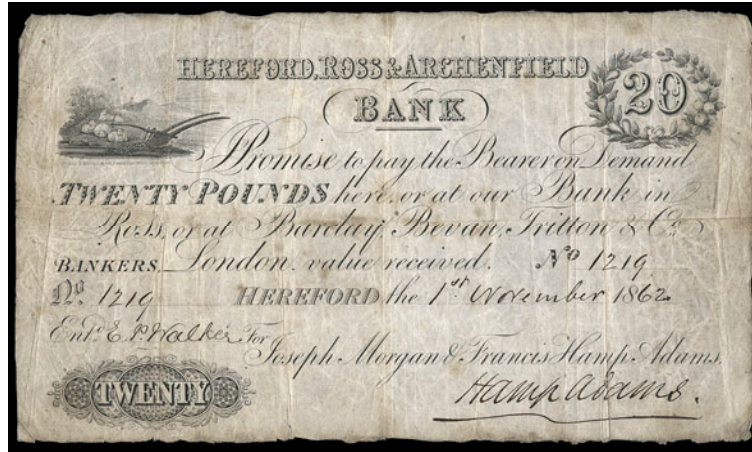 HEREFORD, ROSS & ARCHENFIELD
20
BANK
Promise to pay the Bearer on Demand
TWENTY POUNDS here, or at our Bank in
Ross, or at Barclay, Bevan, Tritton & Co.
BANKERS, London, value received. No 1219
No. 1219 HEREFORD the 1st November 1862
Entd. E. P. Walker For
Joseph Morgan & Francis Hamp Adams.
TWENTY
Hamp Adams.